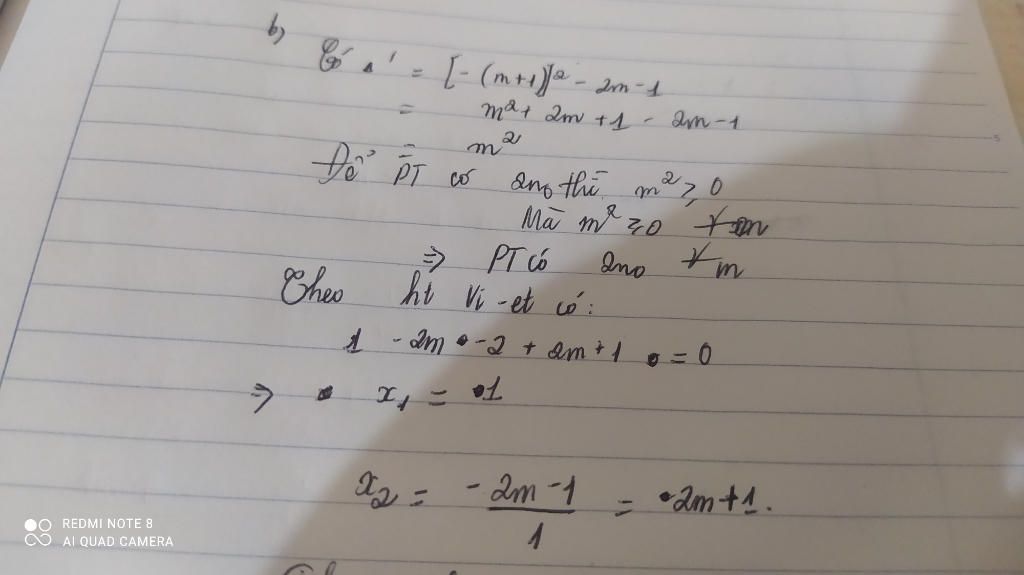 b)
Có Δ' = [-(m+1)]² - 2m - 1
= m² + 2m + 1 - 2m - 1
= m²
Để PT có 2no thì m² ≥ 0
Mà m² ≥ 0 ∀ m
⇒ PT có 2no ∀ m
Theo ht Vi-et có:
1 - 2m - 2 + 2m + 1 = 0
⇒ x₁ = 1
x₂ = - 2m - 1 / 1 = 2m + 1.
REDMI NOTE 8
AI QUAD CAMERA